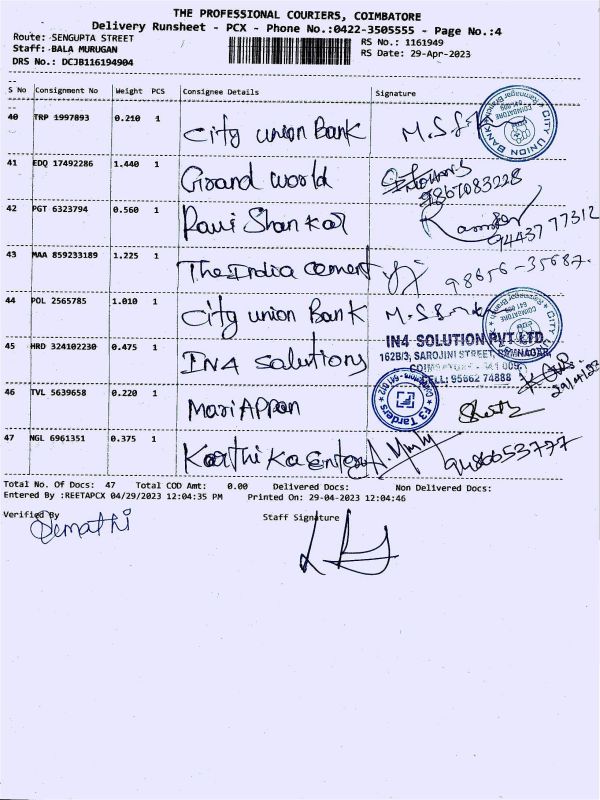 THE PROFESSIONAL COURIERS, COIMBATORE
Delivery Runsheet - PCX - Phone No.:0422-3505555 - Page No.:4
Route: SENGUPTA STREET
RS No.: 1161949
Staff: BALA MURUGAN
RS Date: 29-Apr-2023
DRS No.: DCJB116194904
S No Consignment No Weight PCS Consignee Details Signature
40 TRP 1997893 0.210 1 City union Bank M.S
CITY UNION BANK COIMBATORE
41 EDQ 17492286 1.440 1 Grand world
9867083228
42 PGT 6323794 0.560 1 Ravi Shankar
94437 77312
43 MAA 859233189 1.225 1 The India cement 98656-35687.
44 POL 2565785 1.010 1 City union Bank M.S
CITY UNION COIMBATORE
IN4 SOLUTION PVT LTD
45 HRD 324102230 0.475 1 IN4 Solutions
162B/3, SAROJINI STREET, RAMNAGAR,
COIMBATORE - 641 009.
CELL: 95662 74888
29/04/23
46 TVL 5639658 0.220 1 MariAppan
F3 Tarders
47 NGL 6961351 0.375 1 Karthika Enter
Total No. Of Docs: 47 Total COD Amt: 0.00 Delivered Docs: Non Delivered Docs:
Entered By :REETAPCX 04/29/2023 12:04:35 PM Printed On: 29-04-2023 12:04:46
Verified By Staff Signature